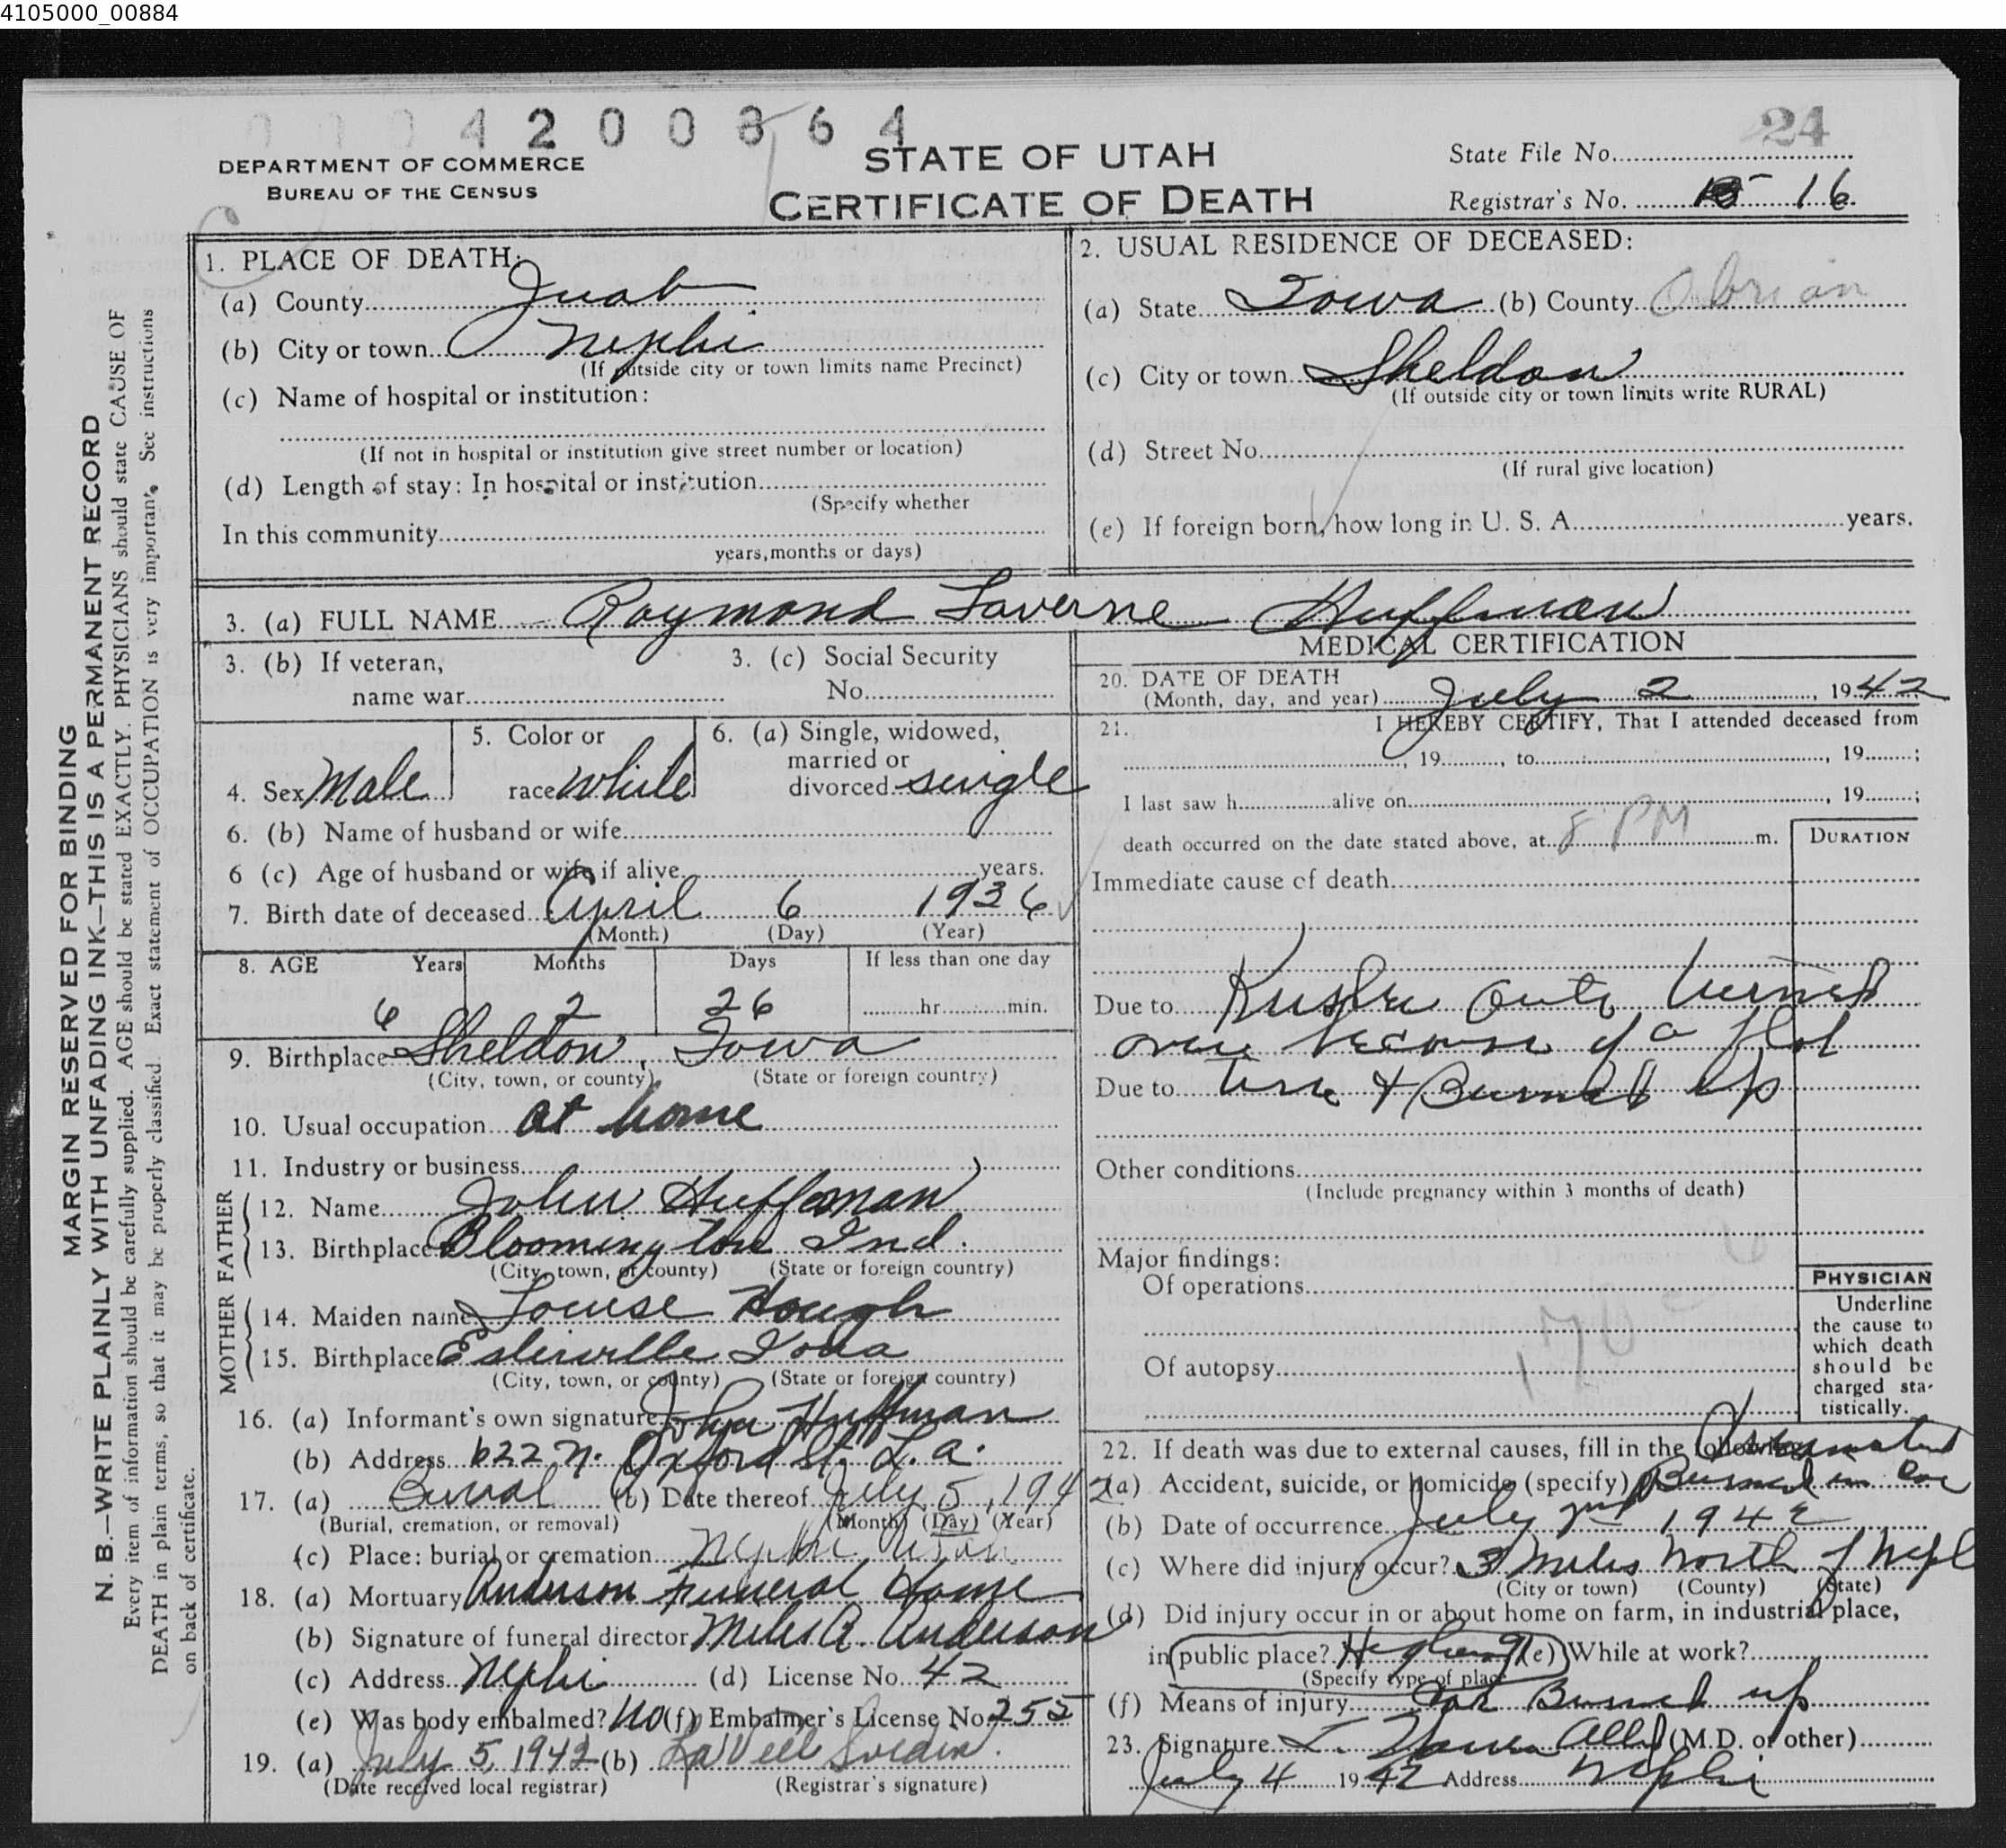 4105000_00884
0 0 0 4 2 0 0 8 6 4
24
DEPARTMENT OF COMMERCE
BUREAU OF THE CENSUS
STATE OF UTAH
CERTIFICATE OF DEATH
State File No.
Registrar's No. 16
MARGIN RESERVED FOR BINDING
N. B.—WRITE PLAINLY WITH UNFADING INK—THIS IS A PERMANENT RECORD
Every item of information should be carefully supplied. AGE should be stated EXACTLY. PHYSICIANS should state CAUSE OF
DEATH in plain terms, so that it may be properly classified. Exact statement of OCCUPATION is very important. See instructions
on back of certificate.
1. PLACE OF DEATH:
(a) County Juab
(b) City or town Nephi
(If outside city or town limits name Precinct)
(c) Name of hospital or institution:
(If not in hospital or institution give street number or location)
(d) Length of stay: In hospital or institution
(Specify whether
In this community
years, months or days)
2. USUAL RESIDENCE OF DECEASED:
(a) State Iowa (b) County Obrian
(c) City or town Sheldon
(If outside city or town limits write RURAL)
(d) Street No.
(If rural give location)
(e) If foreign born, how long in U. S. A. years.
3. (a) FULL NAME Raymond Laverne Huffman
3. (b) If veteran,
name war
3. (c) Social Security
No.
4. Sex Male
5. Color or
race White
6. (a) Single, widowed,
married or
divorced single
6. (b) Name of husband or wife
6 (c) Age of husband or wife if alive years.
7. Birth date of deceased April 6 1936
(Month) (Day) (Year)
8. AGE Years Months Days If less than one day
6 2 26 hr. min.
9. Birthplace Sheldon, Iowa
(City, town, or county) (State or foreign country)
10. Usual occupation at home
11. Industry or business
FATHER
12. Name John Huffman
13. Birthplace Bloomington Ind.
(City, town, or county) (State or foreign country)
MOTHER
14. Maiden name Louise Hough
15. Birthplace Esterville Iowa
(City, town, or county) (State or foreign country)
16. (a) Informant's own signature John Huffman
(b) Address 622 N. Oxford St. L. A.
17. (a) Burial (b) Date thereof July 5, 1942
(Burial, cremation, or removal) (Month) (Day) (Year)
(c) Place: burial or cremation Nephi Utah
18. (a) Mortuary Anderson Funeral Home
(b) Signature of funeral director Miles A. Anderson
(c) Address Nephi (d) License No. 42
(e) Was body embalmed? No (f) Embalmer's License No. 255
19. (a) July 5, 1942 (b) LaVell
(Date received local registrar) (Registrar's signature)
MEDICAL CERTIFICATION
20. DATE OF DEATH
(Month, day, and year) July 2, 1942
21. I HEREBY CERTIFY, That I attended deceased from
, 19 , to , 19 ;
I last saw h alive on , 19 ;
death occurred on the date stated above, at 8 PM m.
DURATION
Immediate cause of death
Due to Auto turned
over because of a flat
Due to tire & Burned up
Other conditions
(Include pregnancy within 3 months of death)
Major findings:
Of operations
Of autopsy
PHYSICIAN
Underline
the cause to
which death
should be
charged sta-
tistically.
22. If death was due to external causes, fill in the following:
(a) Accident, suicide, or homicide (specify) Burned in Car
(b) Date of occurrence July 2nd 1942
(c) Where did injury occur? 3 Miles North of Neph
(City or town) (County) (State)
(d) Did injury occur in or about home on farm, in industrial place,
in public place? Highway (e) While at work?
(Specify type of place
(f) Means of injury Car Burned up
23. Signature (M.D. or other)
July 4 1942 Address Nephi